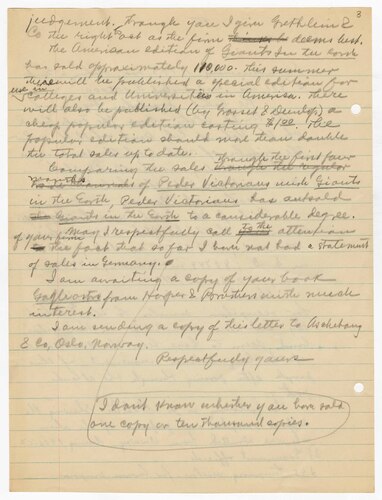 3
judgement. Through you I give Grethlein &
Co the right act as the firm deems best.
The American edition of Giants In the Earth
has sold approximately 110,000. This summer
there will be published a special edition for
use in
Colleges and Universities in America. There
will also be published (by Grosset & Dunlap) a
cheap popular edition costing $1.00 The
popular edition should more than double
the total sales up to date.
Comparing the sales through the first four
months
of Peder Victorious with Giants
in the Earth, Peder Victorious has outsold
Giants in the Earth to a considerable degree.
of your firm May I respectfully call to the attention
the fact that so far I have not had a statement
of sales in Germany.
I am awaiting a copy of your book
from Harper & Brothers with much
interest.
I am sending a copy of this letter to Aschehoug
& Co, Oslo, Norway.
Respectfully yours
I don't know whether you have sold
one copy or ten thousand copies.